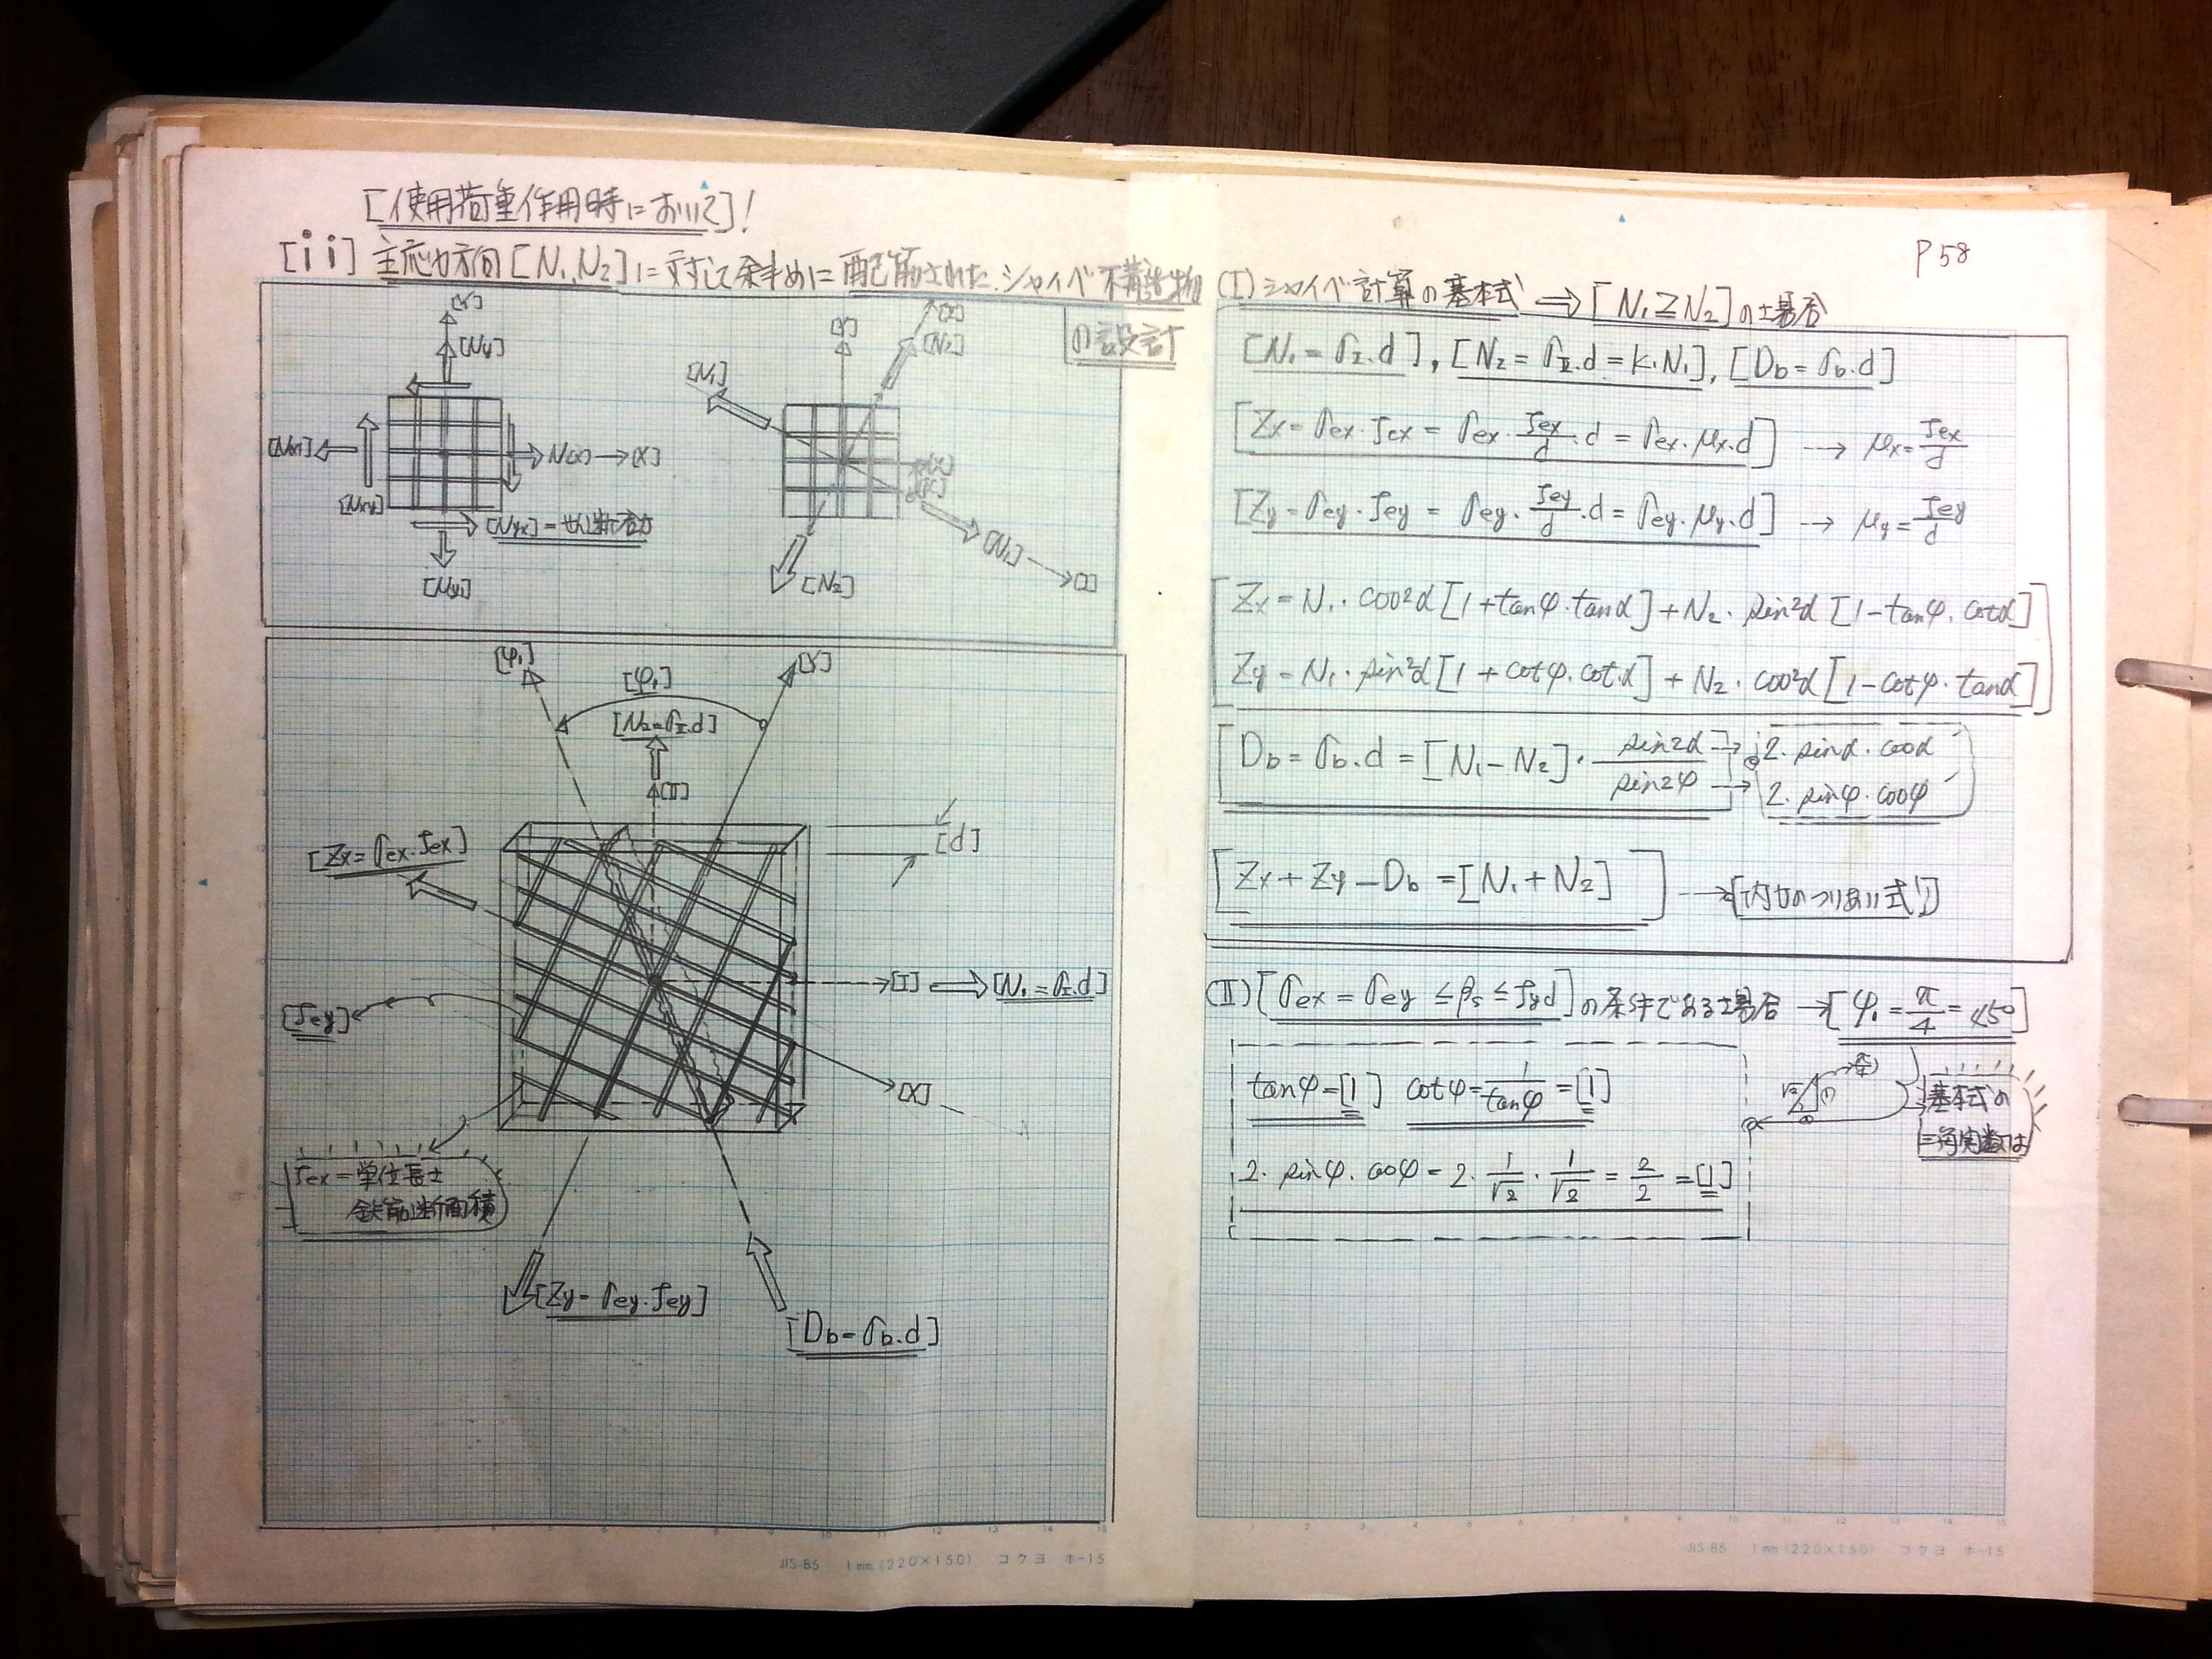 [使用荷重作用時において]!
[ii] 主応力方向[N₁,N₂]に対して斜めに配筋されたシャイベ構造物
の設計
[Y]
[Ny]
[Nx]
N(x)→[X]
[Nxy]
[Nyx]=せん断応力
[Ny]
[Y]
[II]
[N₂]
[N₁]
[X]
[N₁]
[I]
[N₂]
[φ₁]
[Y]
[φ₁]
[N₂=σII.d]
[II]
[d]
[Zx=σex.fex]
[I]
[N₁=σI.d]
[fey]
[X]
fex=単位長さ
鉄筋断面積
[Zy=σey.fey]
[Db=σb.d]
JIS-B5 1mm(220×150) コクヨ ホ-15
P58
(I) シャイベ計算の基本式 ⇒ [N₁≧N₂]の場合
[N₁=σI.d], [N₂=σII.d=k.N₁], [Db=σb.d]
[Zx=σex.fex=σex.fex/d.d=σex.μx.d] → μx=fex/d
[Zy=σey.fey=σey.fey/d.d=σey.μy.d] → μy=fey/d
Zx=N₁.cos²α[1+tanφ.tanα]+N₂.sin²α[1-tanφ.cotα]
Zy=N₁.sin²α[1+cotφ.cotα]+N₂.cos²α[1-cotφ.tanα]
[Db=σb.d=[N₁-N₂].sin2α/sin2φ]
2.sinα.cosα
2.sinφ.cosφ
[Zx+Zy-Db=[N₁+N₂]] → [内力のつりあい式]
(II) [σex=σey≦βs≦fyd]の条件である場合 → [φ₁=π/4=45°]
tanφ=[1] cotφ=1/tanφ=[1]
√2
(1)
基本式の
三角関数は
2.sinφ.cosφ=2.1/√2.1/√2=2/2=[1]
JIS-B5 1mm(220×150) コクヨ ホ-15